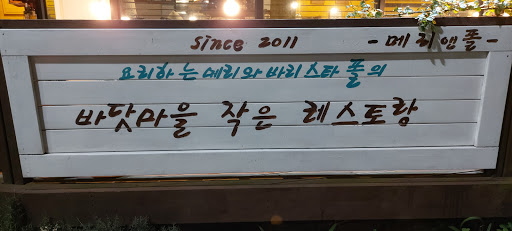 since 2011 - 메리앤폴 -
요리하는메리와바리스타폴의
바닷마을 작은 레스토랑